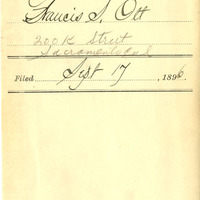 Francis S. Ott
200 K Street
Sacramento Cal
Filed Sept 17, 1896.